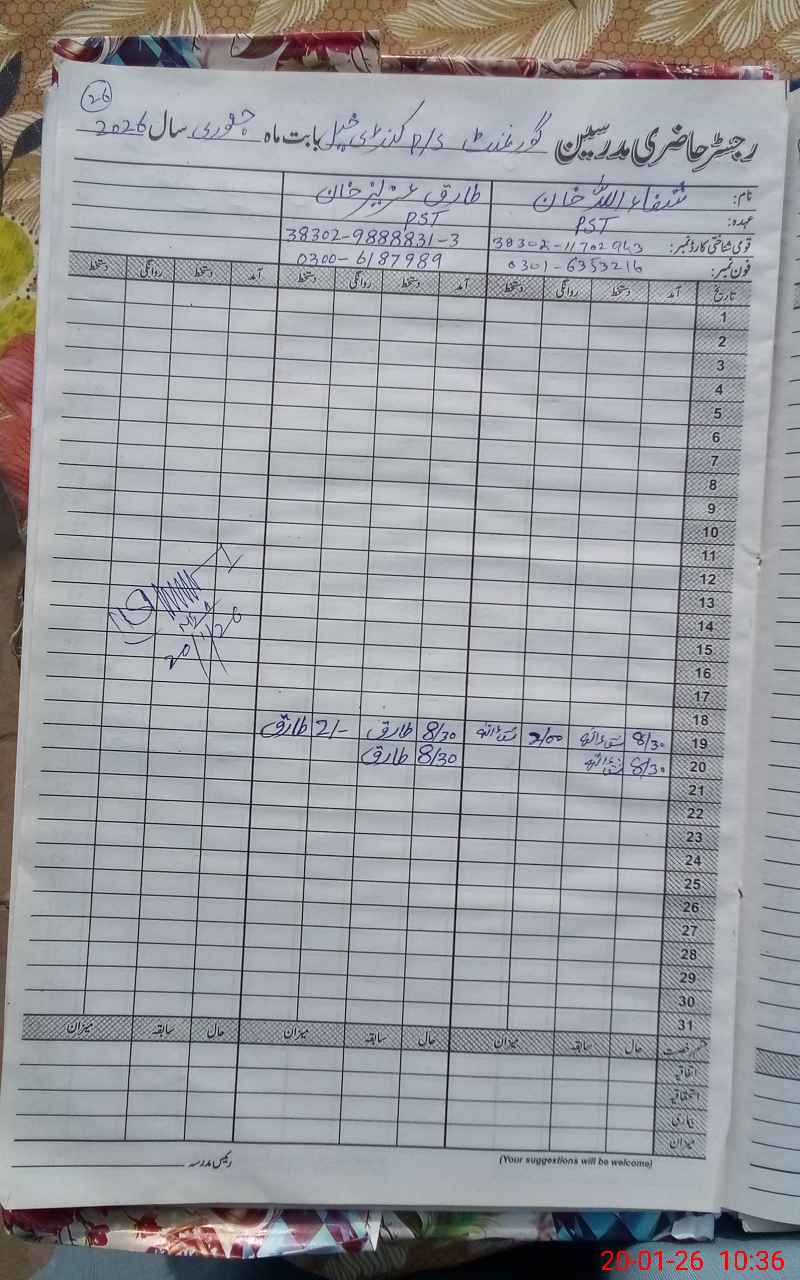 26
رجسٹر حاضری مدرسین گورنمنٹ P/S کنڈی خیل بابت ماہ جنوری سال 2026
نام: شفاء اللہ خان طارق عزیز خان
عہدہ: PST PST
قومی شناختی کارڈ نمبر: 38302-9888831-3
فون نمبر: 0301-6353216 0300-6187989
تاریخ آمد دستخط روانگی دستخط آمد دستخط روانگی دستخط آمد دستخط روانگی دستخط
1
2
3
4
5
6
7
8
9
10
11
12
13
14
15
16
17
18
19 8/30 2/00 8/30 طارق 2/- طارق
20 8/30 8/30 طارق
21
22
23
24
25
26
27
28
29
30
31
20/1/26
حال سابقہ میزان حال سابقہ میزان حال سابقہ میزان
اتفاقیہ
استحقاقیہ
بیماری
میزان
(Your suggestions will be welcome) رئیس مدرسہ
20-01-26 10:36